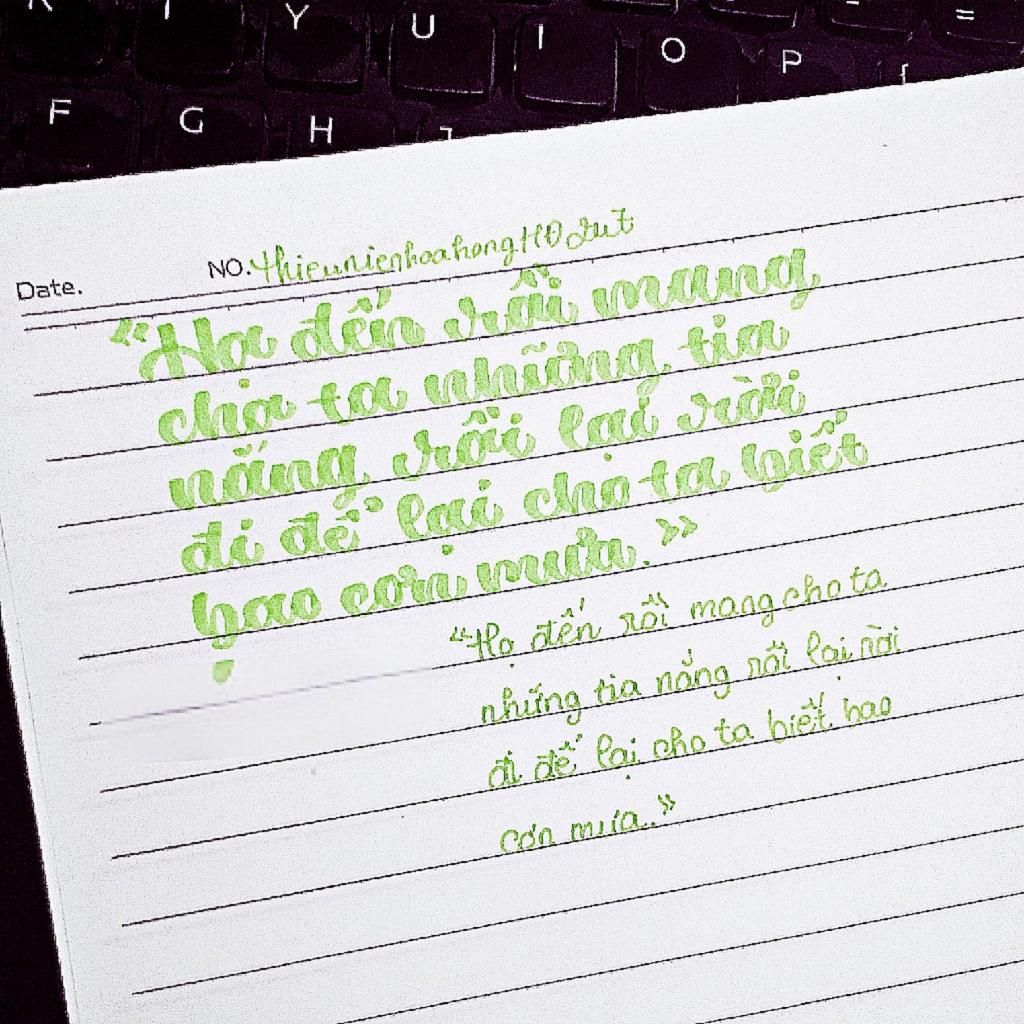 R T Y U I O P [ - =
F G H J
Date. NO. thieunienhoahong
"Họ đến rồi mang
cho ta những tia
nắng rồi lại rời
đi để lại cho ta biết
bao cơn mưa."
"Họ đến rồi mang cho ta
những tia nắng rồi lại rời
đi để lại cho ta biết bao
cơn mưa."